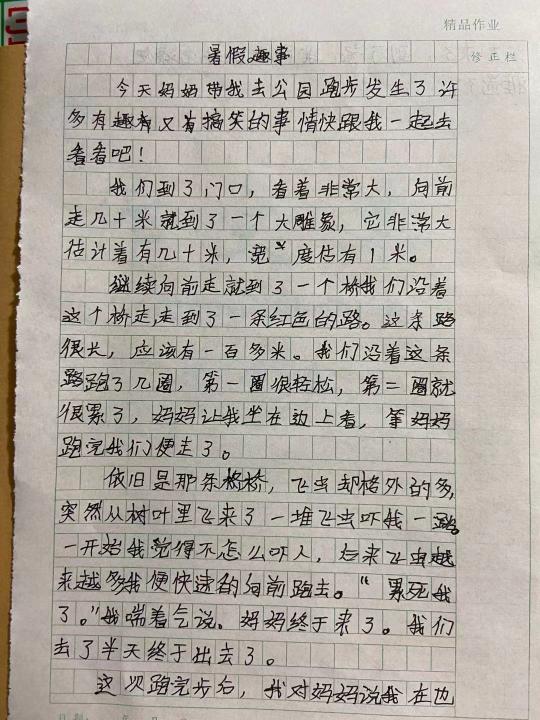 精品作业
修正栏
暑假趣事
今天妈妈带我去公园跑步发生了许
多有趣有又有搞笑的事情快跟我一起去
看看吧！
我们到了门口，看着非常大，向前
走几十米就到了一个大雕象，它非常大
估计着有几十米，宽度估有1米。
继续向前走就到了一个桥我们沿着
这个桥走，走到了一条红色的路。这条路
很长，应该有一百多米。我们沿着这条
路跑了几圈，第一圈很轻松，第二圈就
很累了，妈妈让我坐在边上看，等妈妈
跑完我们便走了。
依旧是那条桥，飞虫却格外的多，
突然从树叶里飞来了一堆飞虫吓我一跳。
一开始我觉得不怎么吓人，后来飞虫越
来越多我便快速的向前跑去。“累死我
了。”我喘着气说。妈妈终于来了。我们
去了半天终于出去了。
这次跑完步后，我对妈妈说我在也